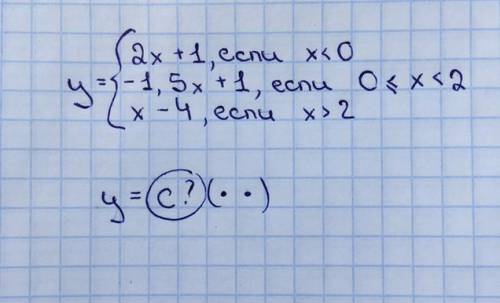 2x + 1, если x < 0
y = { -1,5x + 1, если 0 ≤ x < 2
x - 4, если x > 2
y = c? (· ·)